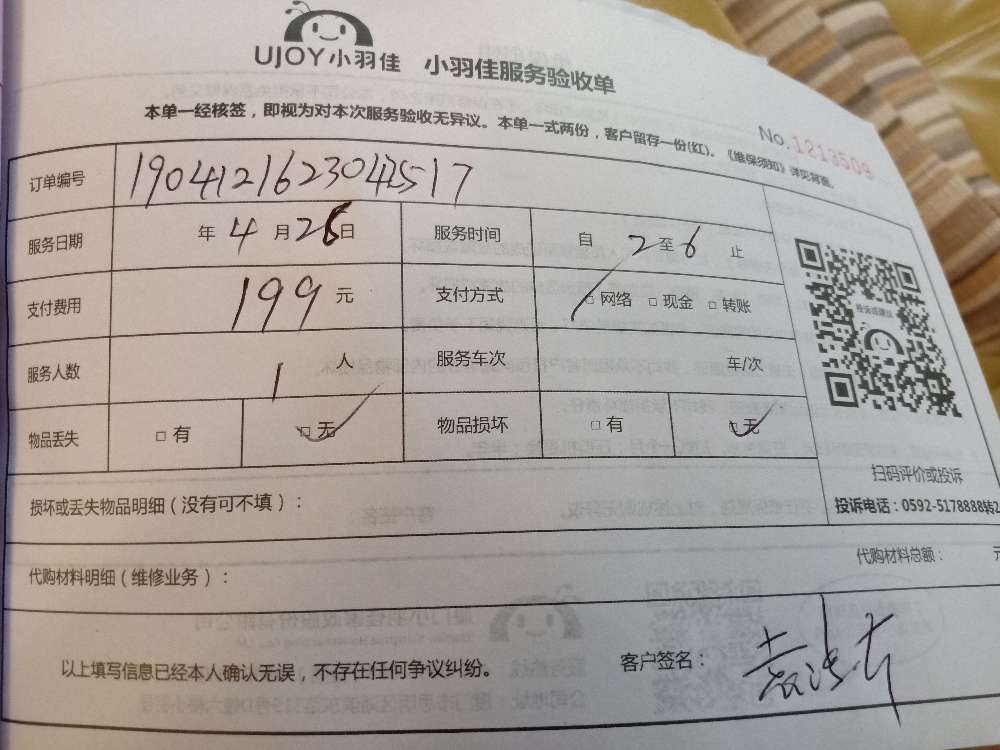 UJOY小羽佳 小羽佳服务验收单
本单一经核签，即视为对本次服务验收无异议。本单一式两份，客户留存一份(红)。《维保须知》详见背面。
No.1213509
订单编号
服务日期 年 4 月 26 日 服务时间 自 2 至 6 止
支付费用 199 元 支付方式 □ 网络 □ 现金 □ 转账
服务人数 1 人 服务车次 车/次
物品丢失 □ 有 □ 无 物品损坏 □ 有 □ 无
扫码评价或投诉
投诉电话：0592-5178888转2
损坏或丢失物品明细（没有可不填）：
代购材料明细（维修业务）：
代购材料总额： 元
以上填写信息已经本人确认无误，不存在任何争议纠纷。 客户签名：